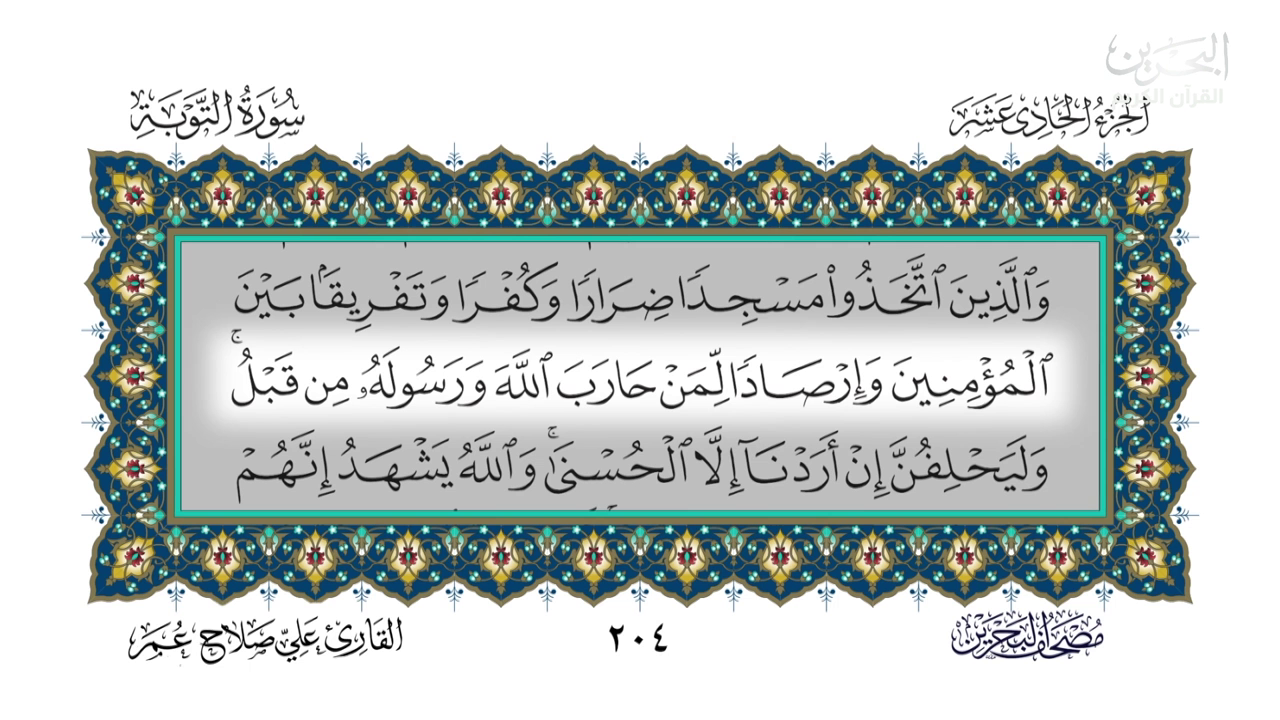 البحرين
القرآن الكريم
الجزء الحادي عشر
سورة التوبة
وَٱلَّذِينَ ٱتَّخَذُوا۟ مَسْجِدًا ضِرَارًا وَكُفْرًا وَتَفْرِيقًۢا بَيْنَ
ٱلْمُؤْمِنِينَ وَإِرْصَادًا لِّمَنْ حَارَبَ ٱللَّهَ وَرَسُولَهُۥ مِن قَبْلُ ۚ
وَلَيَحْلِفُنَّ إِنْ أَرَدْنَآ إِلَّا ٱلْحُسْنَىٰ ۖ وَٱللَّهُ يَشْهَدُ إِنَّهُمْ
مصحف البحرين
٢٠٤
القارئ علي صلاح عمر